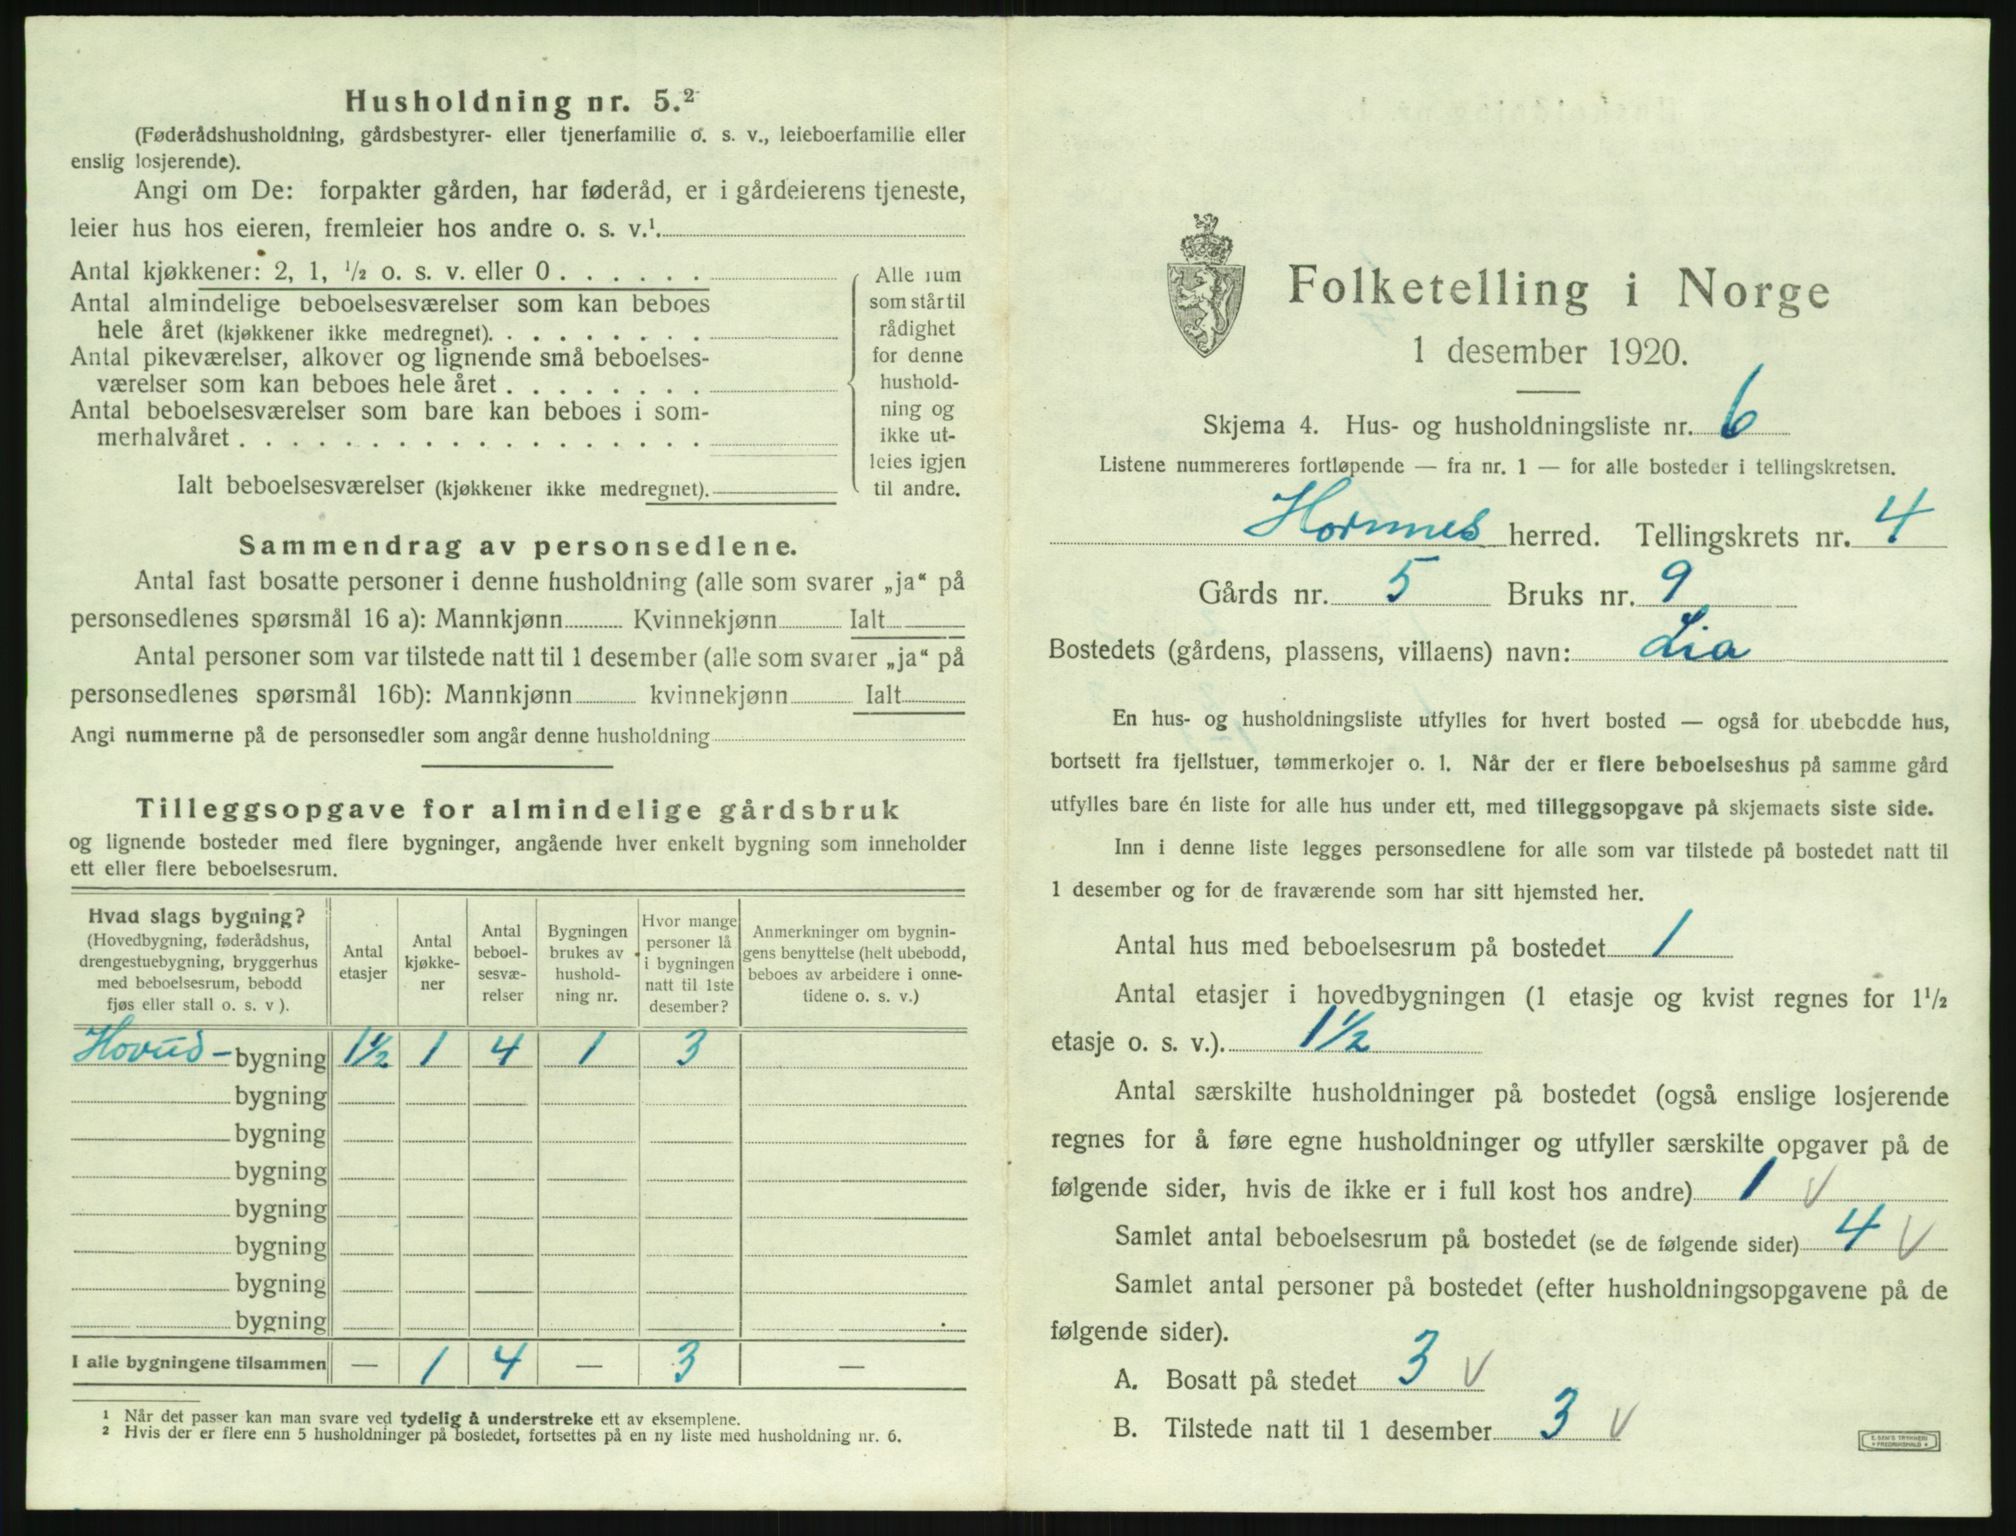 Husholdning nr. 5.²
(Føderådshusholdning, gårdsbestyrer- eller tjenerfamilie o. s. v., leieboerfamilie eller
enslig losjerende).
Angi om De: forpakter gården, har føderåd, er i gårdeierens tjeneste,
leier hus hos eieren, fremleier hos andre o. s. v.¹.
Antal kjøkkener: 2, 1, ½ o. s. v. eller 0 . . . . . .
Antal almindelige beboelsesværelser som kan beboes
hele året (kjøkkener ikke medregnet). . . . . . . . .
Antal pikeværelser, alkover og lignende små beboelses-
værelser som kan beboes hele året . . . . . . . .
Antal beboelsesværelser som bare kan beboes i som-
merhalvåret . . . . . . . . . . . . . . . . . .
Ialt beboelsesværelser (kjøkkener ikke medregnet).
Alle rum
som står til
rådighet
for denne
hushold-
ning og
ikke ut-
leies igjen
til andre.
Sammendrag av personsedlene.
Antal fast bosatte personer i denne husholdning (alle som svarer „ja“ på
personsedlenes spørsmål 16 a): Mannkjønn Kvinnekjønn Ialt
Antal personer som var tilstede natt til 1 desember (alle som svarer „ja“ på
personsedlenes spørsmål 16b): Mannkjønn kvinnekjønn Ialt
Angi nummerne på de personsedler som angår denne husholdning
Tilleggsopgave for almindelige gårdsbruk
og lignende bosteder med flere bygninger, angående hver enkelt bygning som inneholder
ett eller flere beboelsesrum.
Hvad slags bygning?
(Hovedbygning, føderådshus,
drengestuebygning, bryggerhus
med beboelsesrum, bebodd
fjøs eller stall o. s. v ).
Antal
etasjer
Antal
kjøkke-
ner
Antal
beboel-
sesvæ-
relser
Bygningen
brukes av
hushold-
ning nr.
Hvor mange
personer lå
i bygningen
natt til 1ste
desember?
Anmerkninger om bygnin-
gens benyttelse (helt ubebodd,
beboes av arbeidere i onne-
tidene o. s. v.)
Hovud- bygning 1½ 1 4 1 3
bygning
bygning
bygning
bygning
bygning
bygning
bygning
I alle bygningene tilsammen — 1 4 — 3 —
¹ Når det passer kan man svare ved tydelig å understreke ett av eksemplene.
² Hvis der er flere enn 5 husholdninger på bostedet, fortsettes på en ny liste med husholdning nr. 6.
Folketelling i Norge
1 desember 1920.
Skjema 4. Hus- og husholdningsliste nr. 6
Listene nummereres fortløpende — fra nr. 1 — for alle bosteder i tellingskretsen.
Hornnes herred. Tellingskrets nr. 4
Gårds nr. 5 Bruks nr. 9
Bostedets (gårdens, plassens, villaens) navn: Lia
En hus- og husholdningsliste utfylles for hvert bosted — også for ubebodde hus,
bortsett fra fjellstuer, tømmerkojer o. l. Når der er flere beboelseshus på samme gård
utfylles bare én liste for alle hus under ett, med tilleggsopgave på skjemaets siste side.
Inn i denne liste legges personsedlene for alle som var tilstede på bostedet natt til
1 desember og for de fraværende som har sitt hjemsted her.
Antal hus med beboelsesrum på bostedet 1
Antal etasjer i hovedbygningen (1 etasje og kvist regnes for 1½
etasje o. s. v.). 1½
Antal særskilte husholdninger på bostedet (også enslige losjerende
regnes for å føre egne husholdninger og utfyller særskilte opgaver på de
følgende sider, hvis de ikke er i full kost hos andre) 1 v
Samlet antal beboelsesrum på bostedet (se de følgende sider) 4 v
Samlet antal personer på bostedet (efter husholdningsopgavene på de
følgende sider).
A. Bosatt på stedet 3 v
B. Tilstede natt til 1 desember 3 v
E. SEM'S TRYKKERI
FREDRIKSHALD